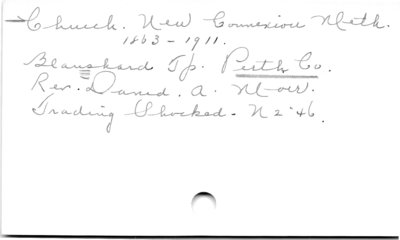 Church. New Connexion Meth.
1863 - 1911.
Blanshard Tp. Perth Co.
Rev. David. A. Moir.
Trading